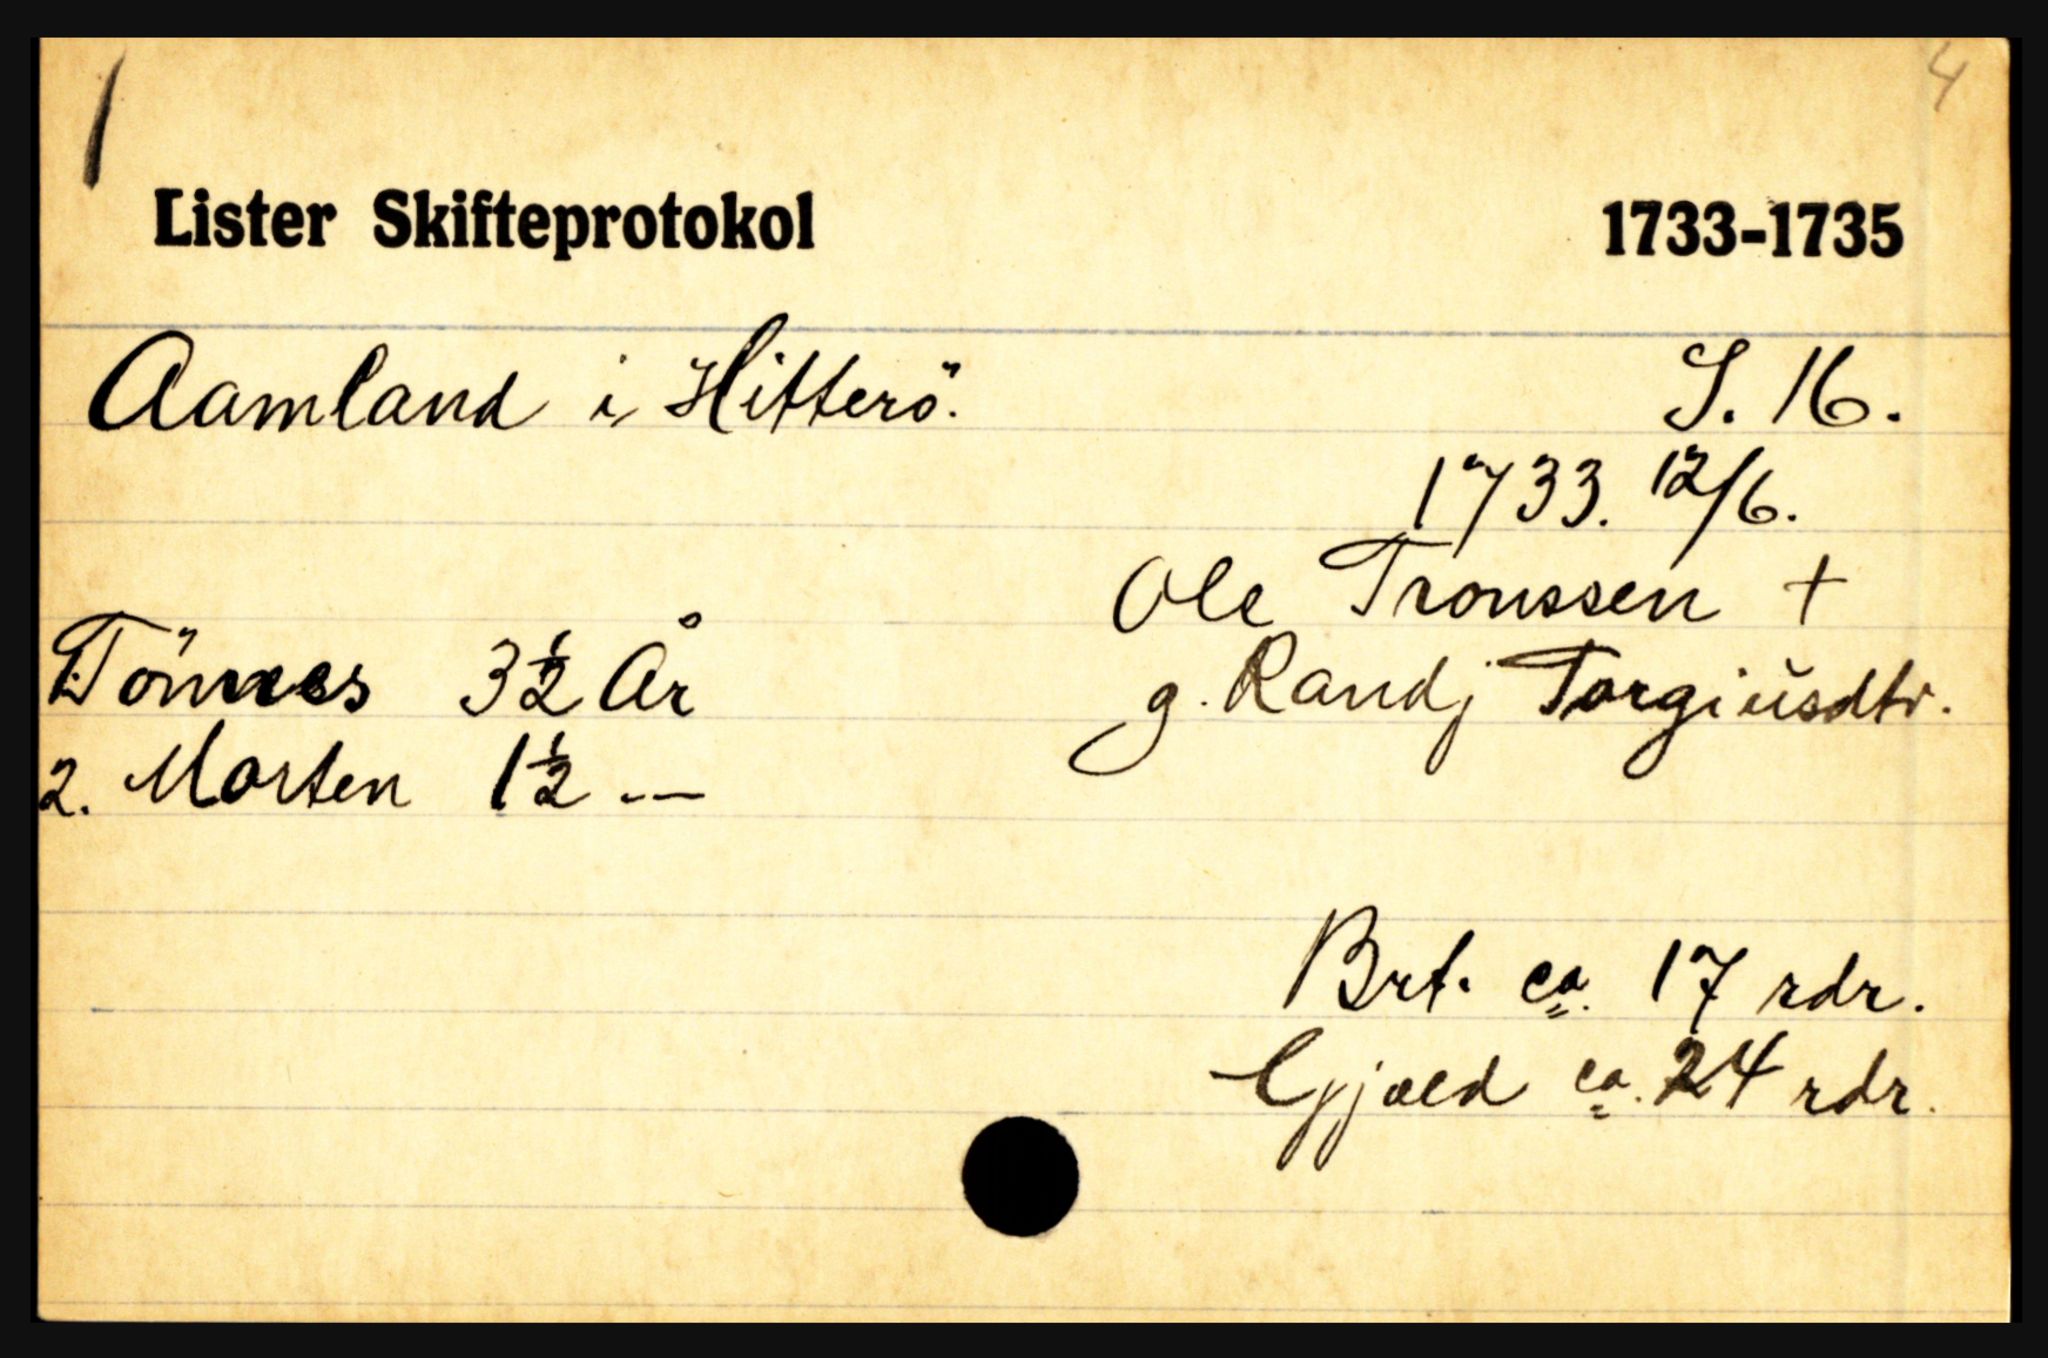 1
4
Lister Skifteprotokol 1733-1735
Aamland i Hitterö. S. 16.
1733. 12/6.
Ole Tronssen +
g. Randj Torgiŭsdtr.
1. Tönnes 3½ År
2. Morten 1½ --
Brt. ca. 17 rdr.
Gjæld ca. 24 rdr.